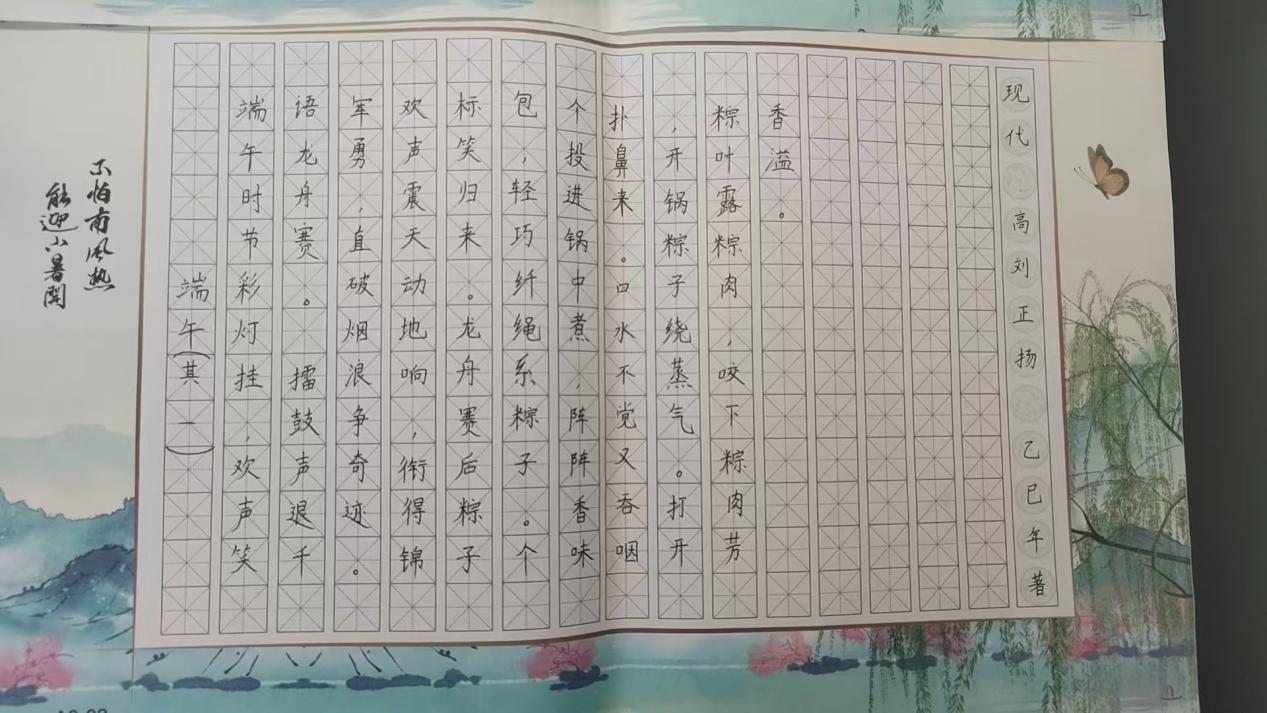 不怕南风热
能迎小暑開
端午(其一)
端午时节彩灯挂,欢声笑
语龙舟赛。擂鼓声退千
军勇,直破烟浪争奇迹。
欢声震天动地响,衔得锦
标笑归来。龙舟赛后粽子
包,轻巧纤绳系粽子。个
个投进锅中煮,阵阵香味
扑鼻来。口水不觉又吞咽
,开锅粽子绕蒸气。打开
粽叶露粽肉,咬下粽肉芳
香溢。
现代·高刘正扬 乙巳年著